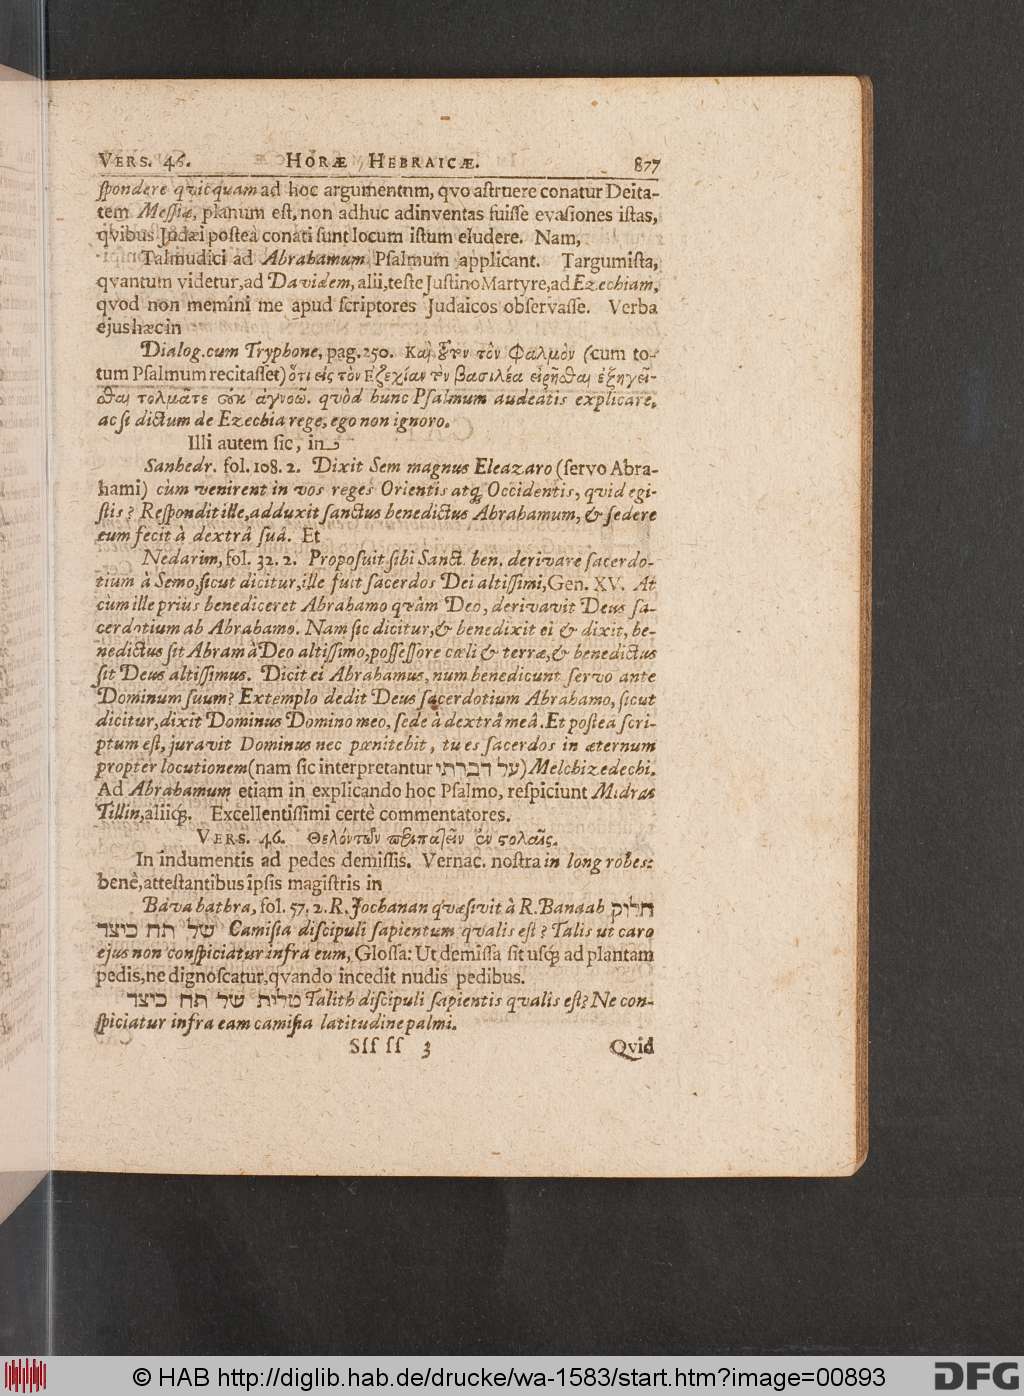 VERS. 46. HORÆ HEBRAICÆ. 877
ſpondere qvicquam ad hoc argumentum, qvo aſtruere conatur Deita-
tem Meſſiæ, planum eſt, non adhuc adinventas fuiſſe evaſiones iſtas,
qvibus Judæi poſtea conati ſunt locum iſtum eludere. Nam,
Talmudici ad Abrahamum Pſalmum applicant. Targumiſta,
qvantum videtur, ad Davidem, alii, teſte Juſtino Martyre, ad Ezechiam,
qvod non memini me apud ſcriptores Judaicos obſervaſſe. Verba
ejus hæc in
Dialog. cum Tryphone, pag. 250. Καὶ τὸν ψαλμὸν (cum to-
tum Pſalmum recitaſſet) ὅτι εἰς τὸν Εζεχίαν τὸν βασιλέα εἰρῆσθαι ἐξηγεῖ-
σθαι τολμᾶτε οὐκ ἀγνοῶ. qvòd hunc Pſalmum audeatis explicare,
ac ſi dictum de Ezechia rege, ego non ignoro.
Illi autem ſic, in
Sanhedr. fol. 108. 2. Dixit Sem magnus Eleazaro (ſervo Abra-
hami) cùm venirent in vos reges Orientis atq; Occidentis, qvid egi-
ſtis? Reſpondit ille, adduxit ſanctus benedictus Abrahamum, & ſedere
eum fecit à dextrâ ſuâ. Et
Nedarim, fol. 32. 2. Propoſuit ſibi Sanct. ben. derivare ſacerdo-
tium à Semo, ſicut dicitur, ille fuit ſacerdos Dei altiſſimi, Gen. XV. At
cùm ille priùs benediceret Abrahamo qvàm Deo, derivavit Deus ſa-
cerdotium ab Abrahamo. Nam ſic dicitur, & benedixit ei & dixit, be-
nedictus ſit Abram à Deo altiſſimo, poſſeſſore cœli & terræ, & benedictus
ſit Deus altiſſimus. Dicit ei Abrahamus, num benedicunt ſervo ante
Dominum ſuum? Extemplo dedit Deus ſacerdotium Abrahamo, ſicut
dicitur, dixit Dominus Domino meo, ſede à dextrâ meâ. Et poſtea ſcri-
ptum eſt, juravit Dominus nec pœnitebit, tu es ſacerdos in æternum
propter locutionem (nam ſic interpretantur על דברתי) Melchizedechi.
Ad Abrahamum etiam in explicando hoc Pſalmo, reſpiciunt Midras
Tillin, aliiq;. Excellentiſſimi certè commentatores.
VERS. 46. Θελόντων περιπατεῖν ἐν στολαῖς.
In indumentis ad pedes demiſſis. Vernac. noſtra in long robes:
benè, atteſtantibus ipſis magiſtris in
Bava bathra, fol. 57. 2. R. Jochanan qvæſivit à R. Banaah חלוק
של תח כיצד Camiſia diſcipuli ſapientum qvalis eſt? Talis ut caro
ejus non conſpiciatur infra eum, Gloſſa: Ut demiſſa ſit uſq; ad plantam
pedis, ne dignoſcatur, qvando incedit nudis pedibus.
טלית של תח כיצד Talith diſcipuli ſapientis qvalis eſt? Ne con-
ſpiciatur infra eam camiſia latitudine palmi.
Sſſ ſſ 3 Qvid
© HAB http://diglib.hab.de/drucke/wa-1583/start.htm?image=00893 DFG